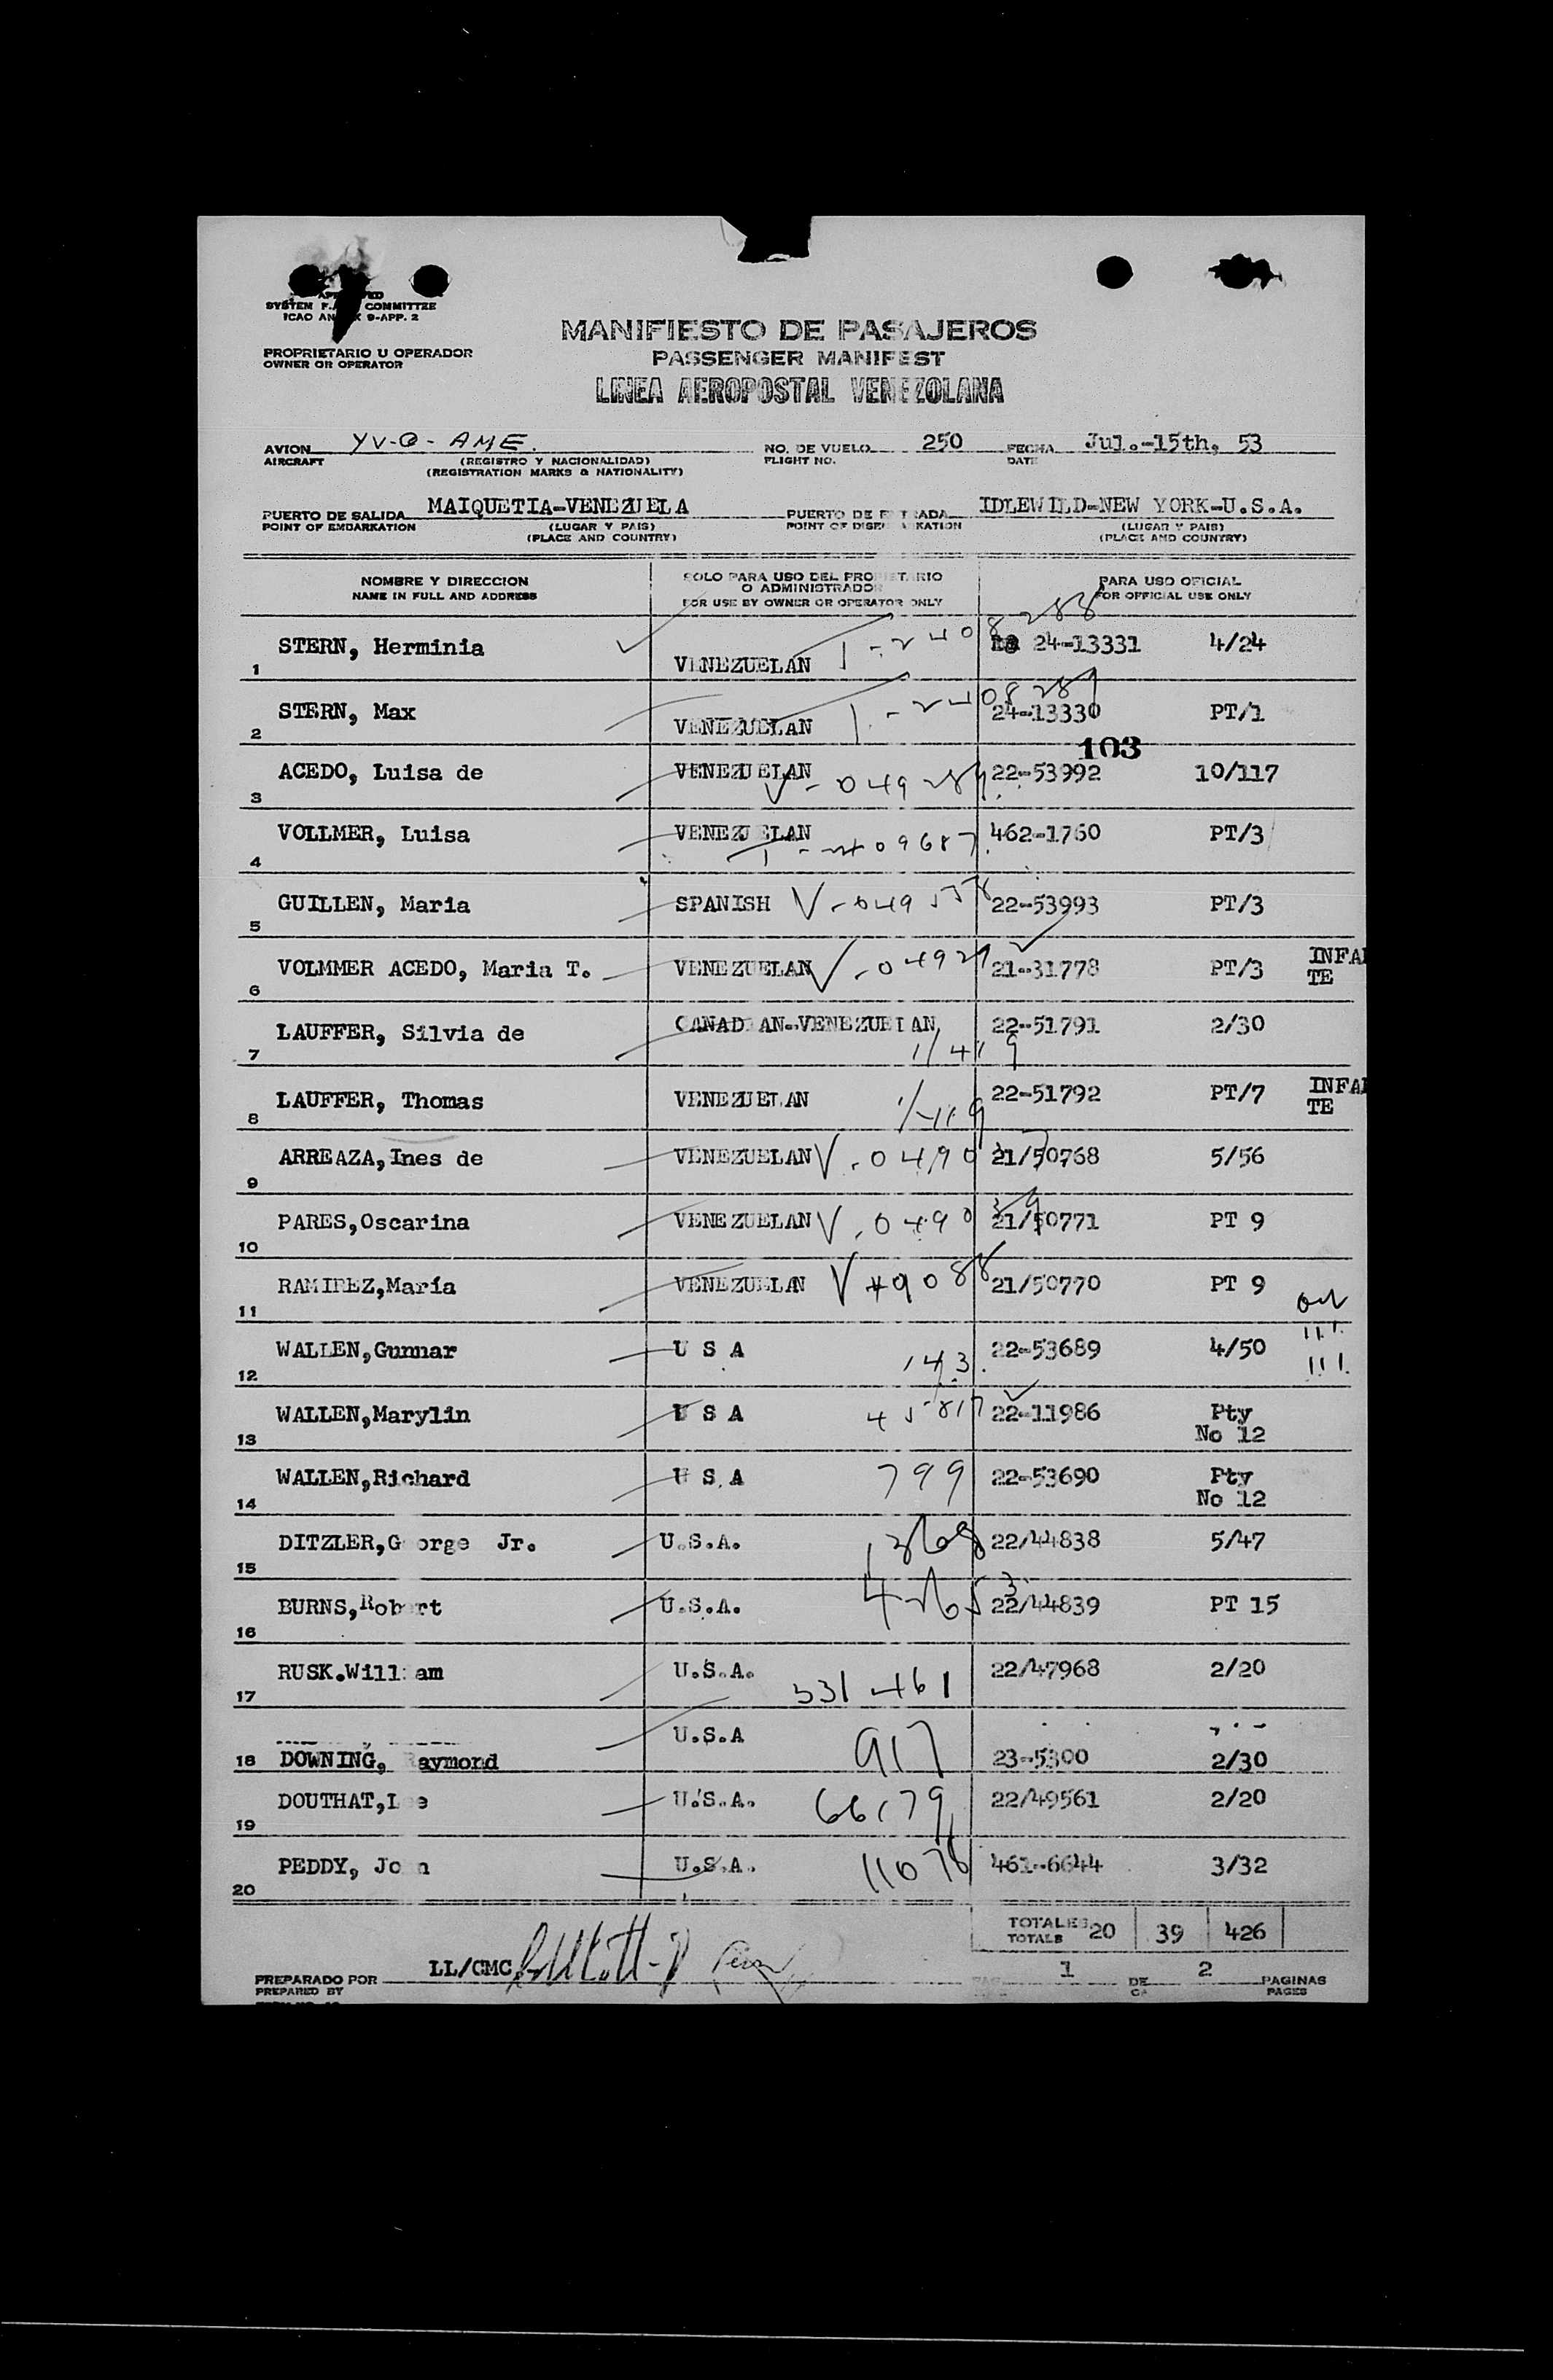 SYSTEM F. COMMITTEE
ICAO ANNEX 9-APP. 2
PROPRIETARIO U OPERADOR
OWNER OR OPERATOR
MANIFIESTO DE PASAJEROS
PASSENGER MANIFEST
LINEA AEROPOSTAL VENEZOLANA
AVION YV-C-AME. NO. DE VUELO 250 FECHA Jul.-15th, 53
AIRCRAFT (REGISTRO Y NACIONALIDAD) FLIGHT NO. DATE
(REGISTRATION MARKS & NATIONALITY)
PUERTO DE SALIDA MAIQUETIA-VENEZUELA PUERTO DE ENTRADA IDLEWILD-NEW YORK-U.S.A.
POINT OF EMBARKATION (LUGAR Y PAIS) POINT OF DISEMBARKATION (LUGAR Y PAIS)
(PLACE AND COUNTRY) (PLACE AND COUNTRY)
NOMBRE Y DIRECCION SOLO PARA USO DEL PROPIETARIO PARA USO OFICIAL
NAME IN FULL AND ADDRESS O ADMINISTRADOR FOR OFFICIAL USE ONLY
FOR USE BY OWNER OR OPERATOR ONLY
1 STERN, Herminia VENEZUELAN 24-13331 4/24
2 STERN, Max VENEZUELAN 24-13330 PT/1
103
3 ACEDO, Luisa de VENEZUELAN V-049289. 22-53992 10/117
4 VOLLMER, Luisa VENEZUELAN 462-1760 PT/3
5 GUILLEN, Maria SPANISH 22-53993 PT/3
6 VOLMMER ACEDO, Maria T. VENEZUELAN 21-31778 PT/3 INFAN
TE
7 LAUFFER, Silvia de CANADIAN-VENEZUELAN 22-51791 2/30
8 LAUFFER, Thomas VENEZUELAN 22-51792 PT/7 INFAN
TE
9 ARREAZA,Ines de VENEZUELAN 21/50768 5/56
10 PARES,Oscarina VENEZUELAN 21/50771 PT 9
11 RAMIREZ,María VENEZUELAN 21/50770 PT 9
12 WALLEN,Gunnar U S A 143. 22-53689 4/50
13 WALLEN,Marylin U S A 22-11986 Pty
No 12
14 WALLEN,Richard U S A 799 22-53690 Pty
No 12
15 DITZLER,George Jr. U.S.A. 22/44838 5/47
16 BURNS,Robert U.S.A. 22/44839 PT 15
17 RUSK.William U.S.A. 22/47968 2/20
18 DOWNING, Raymond U.S.A 917 23-5300 2/30
19 DOUTHAT,Lee U.S.A. 66179 22/49561 2/20
20 PEDDY, John U.S.A. 11078 461-6644 3/32
TOTALES 20 39 426
TOTALS
PREPARADO POR LL/CMC 1 DE 2 PAGINAS
PREPARED BY OF PAGES